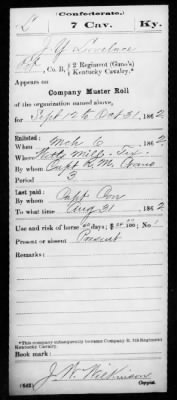 (Confederate.)
L 7 Cav. Ky.
J Y Lovelace
Co. B, 2 Regiment (Gano's)
Kentucky Cavalry.*
Appears on
Company Muster Roll
of the organization named above,
for Sept 12 to Oct 31, 1862
Enlisted:
When Mch 6, 1862
Where Mill, Tex.
By whom Capt R. M. Gano
Period 3
Last paid:
By whom Capt
To what time Aug 31, 1862
Use and risk of horse days; $ 100;
Present or absent Present
Remarks:
*This company subsequently became Company B, 7th Regiment
Kentucky Cavalry.
Book mark:
J. W. Wilkinson
(642) Copyist.